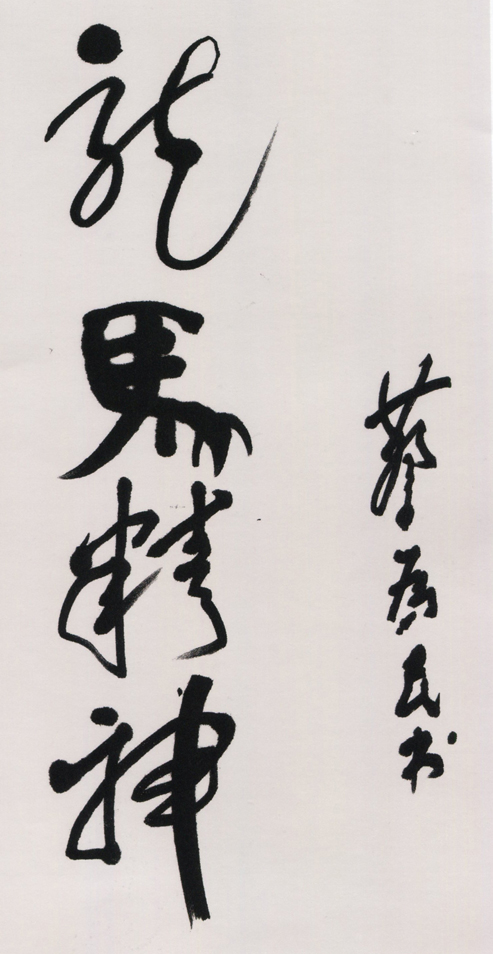 龍馬精神
蔡為民书